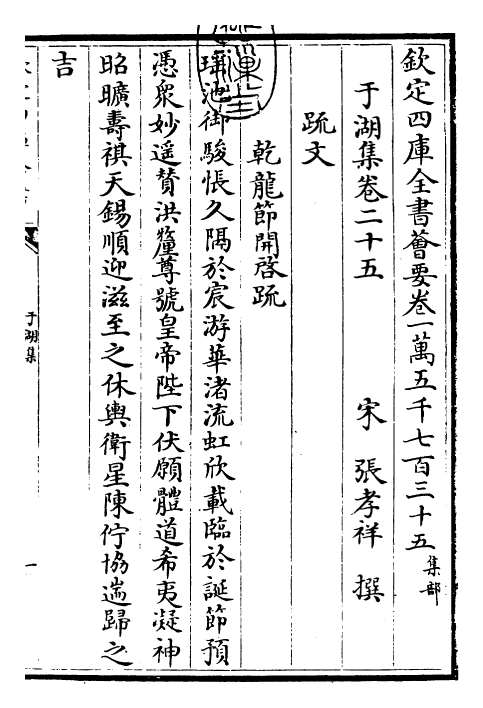 欽定四庫全書薈要卷一萬五千七百三十五 集部
于湖集卷二十五 宋 張孝祥 撰
疏文
乾龍節開啓疏
瑶池御駿悵久隔於宸游華渚流虹欣載臨於誕節預
憑衆妙遥賛洪釐尊號皇帝陛下伏願體道希夷凝神
昭曠壽祺天錫順迎滋至之休輿衛星陳佇協遄歸之
吉
于湖集
一